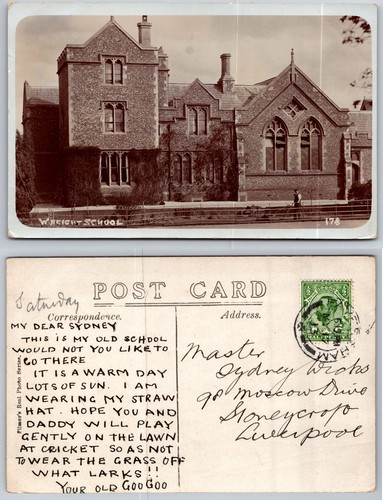 WREIGHT SCHOOL
178
POST CARD
Correspondence.
Address.
Saturday
MY DEAR SYDNEY
THIS IS MY OLD SCHOOL
WOULD NOT YOU LIKE TO
GO THERE
IT IS A WARM DAY
LOTS OF SUN. I AM
WEARING MY STRAW
HAT. HOPE YOU AND
DADDY WILL PLAY
GENTLY ON THE LAWN
AT CRICKET SO AS NOT
TO WEAR THE GRASS OFF
WHAT LARKS!!
YOUR OLD GOO GOO
Master
Sydney Wicks
98 Moscow Drive
Stoneycroft
Liverpool
Real Photo Series.